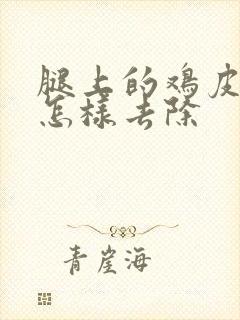 腿上的鸡皮
怎样去除
青崖海